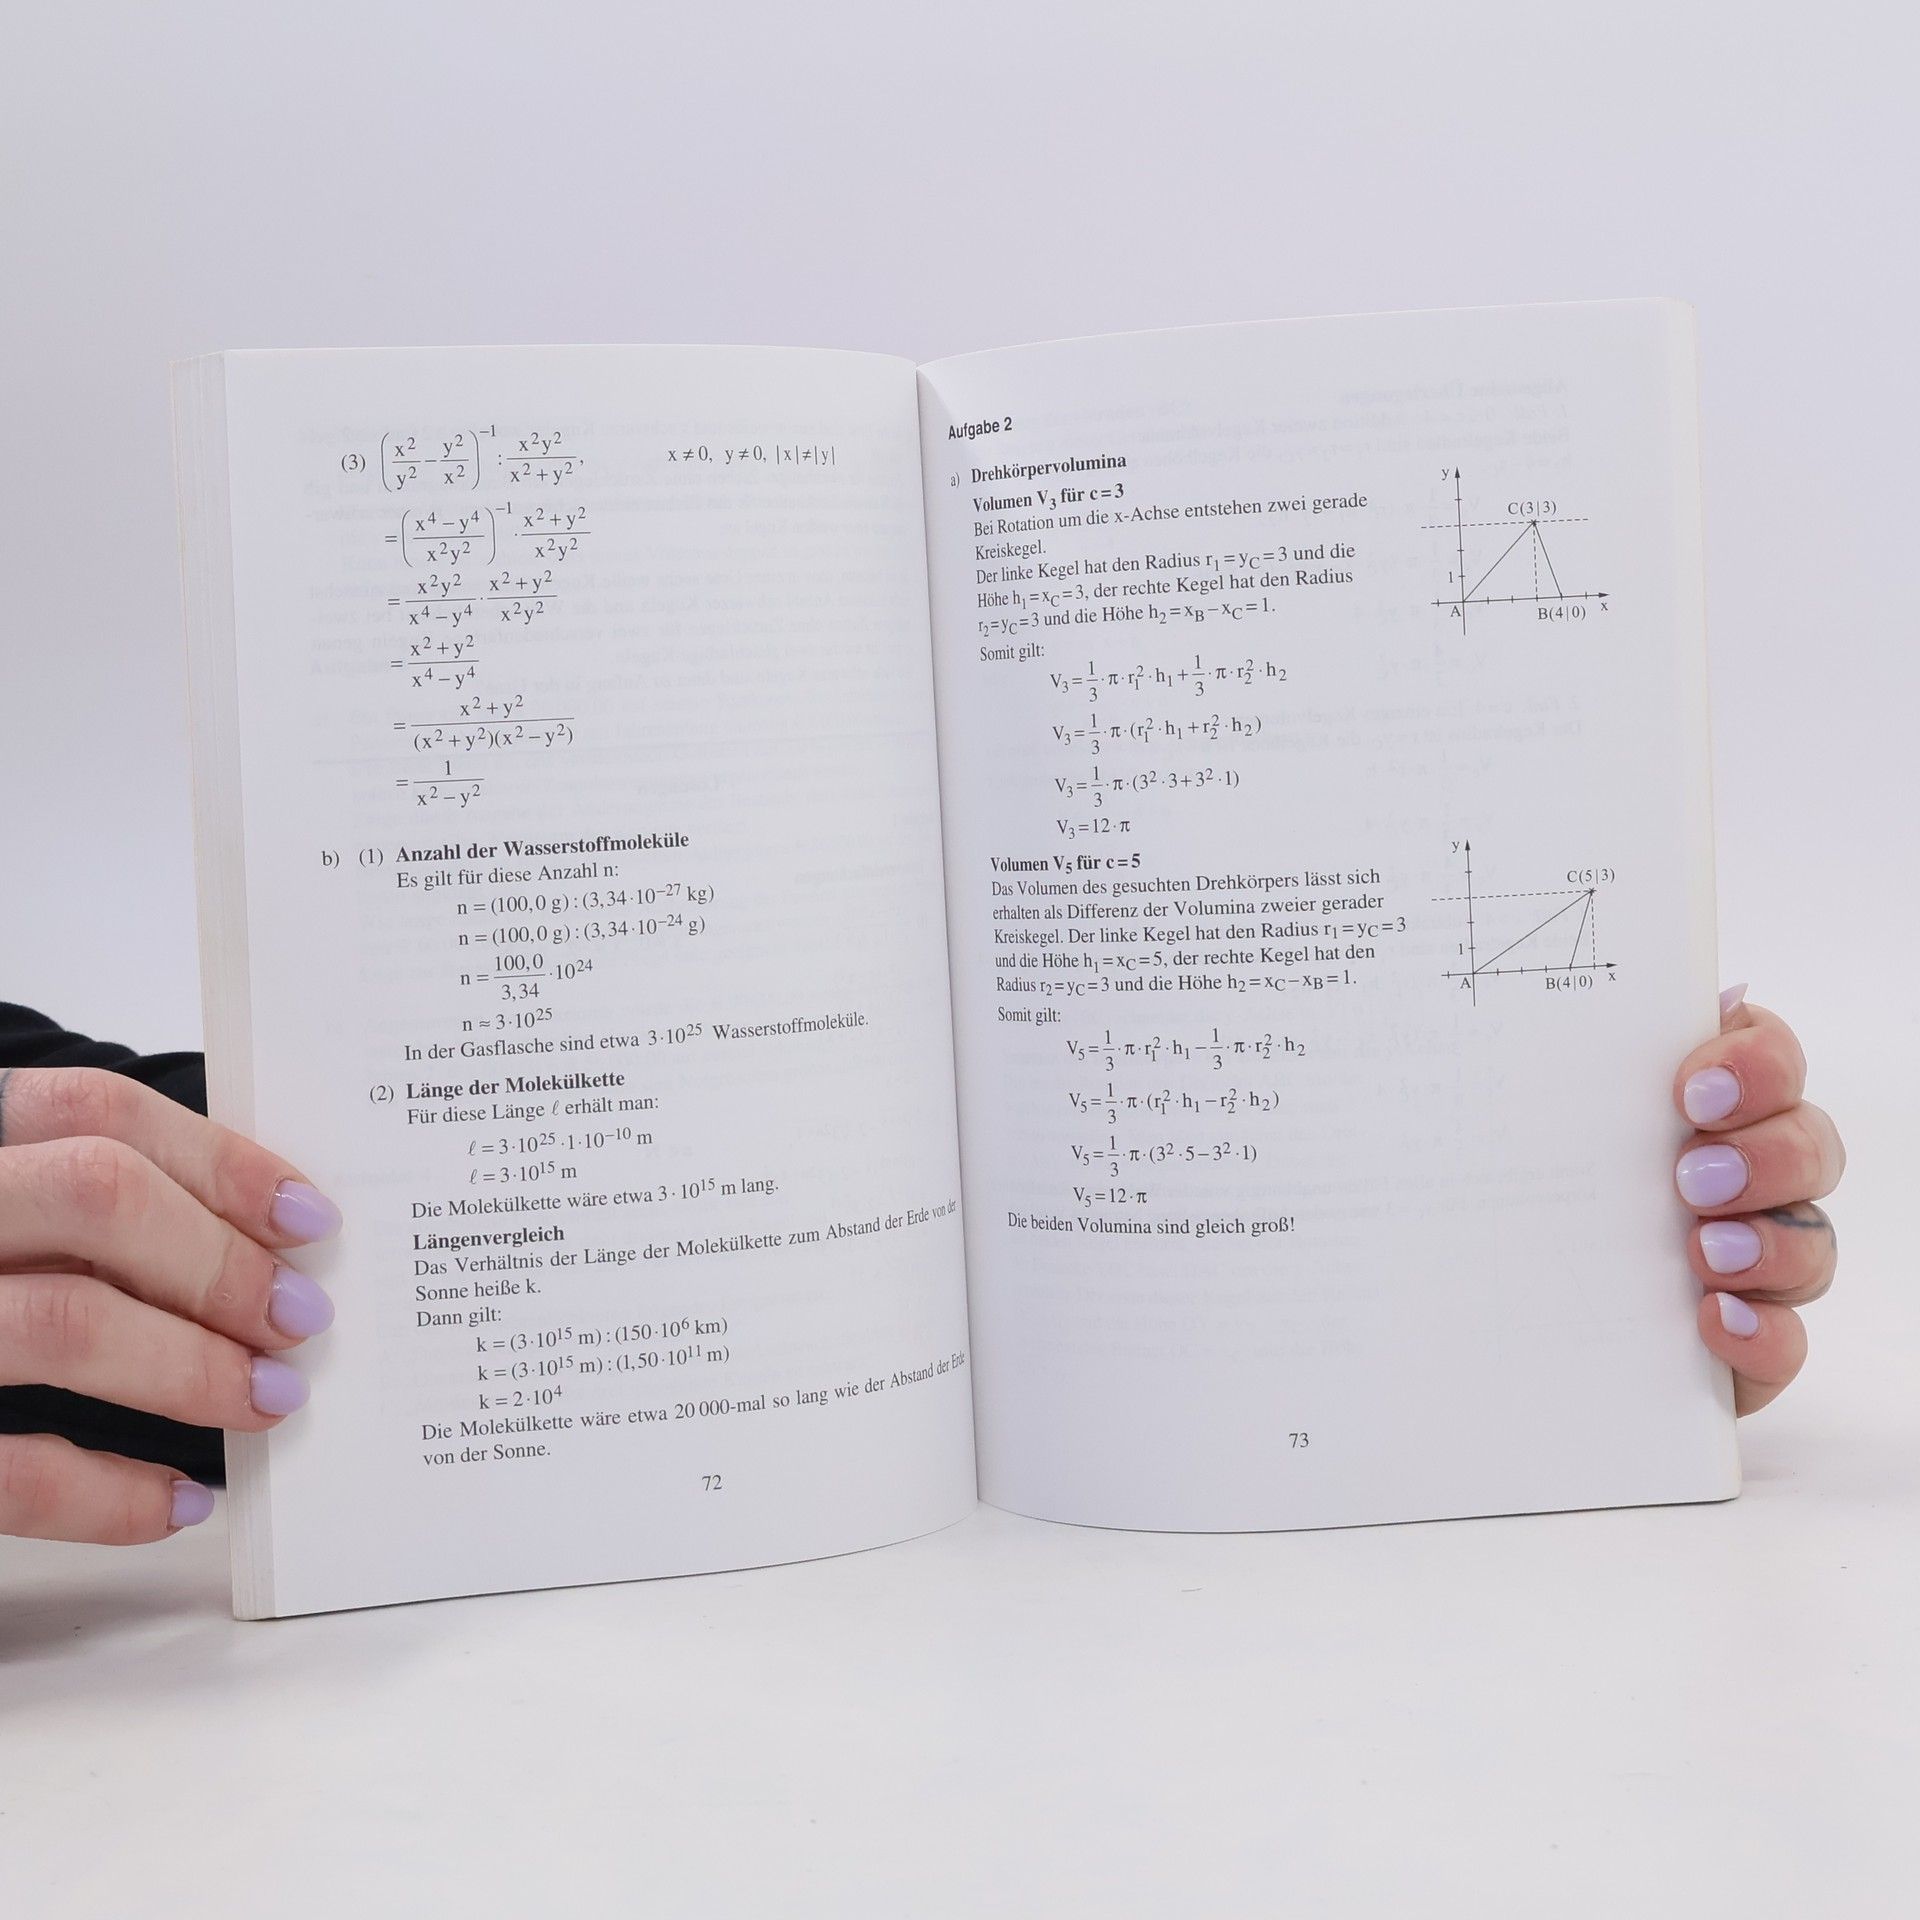 (3) (x²/y² − y²/x²)⁻¹ : x²y²/(x² + y²), x ≠ 0, y ≠ 0, |x| ≠ |y|
= ((x⁴ − y⁴)/(x²y²))⁻¹ · (x² + y²)/(x²y²)
= x²y²/(x⁴ − y⁴) · (x² + y²)/(x²y²)
= (x² + y²)/(x⁴ − y⁴)
= (x² + y²)/((x² + y²)(x² − y²))
= 1/(x² − y²)
b) (1) Anzahl der Wasserstoffmoleküle
Es gilt für diese Anzahl n:
n = (100,0 g) : (3,34·10⁻²⁷ kg)
n = (100,0 g) : (3,34·10⁻²⁴ g)
n = 100,0/3,34 · 10²⁴
n ≈ 3·10²⁵
In der Gasflasche sind etwa 3·10²⁵ Wasserstoffmoleküle.
(2) Länge der Molekülkette
Für diese Länge ℓ erhält man:
ℓ = 3·10²⁵ · 1·10⁻¹⁰ m
ℓ = 3·10¹⁵ m
Die Molekülkette wäre etwa 3 · 10¹⁵ m lang.
Längenvergleich
Das Verhältnis der Länge der Molekülkette zum Abstand der Erde von der
Sonne heiße k.
Dann gilt:
k = (3·10¹⁵ m) : (150·10⁶ km)
k = (3·10¹⁵ m) : (1,50·10¹¹ m)
k = 2·10⁴
Die Molekülkette wäre etwa 20 000-mal so lang wie der Abstand der Erde
von der Sonne.
72
Aufgabe 2
a) Drehkörpervolumina
Volumen V₃ für c = 3
Bei Rotation um die x-Achse entstehen zwei gerade
Kreiskegel.
Der linke Kegel hat den Radius r₁ = y_C = 3 und die
Höhe h₁ = x_C = 3, der rechte Kegel hat den Radius
r₂ = y_C = 3 und die Höhe h₂ = x_B − x_C = 1.
Somit gilt:
V₃ = 1/3 · π · r₁² · h₁ + 1/3 · π · r₂² · h₂
V₃ = 1/3 · π · (r₁² · h₁ + r₂² · h₂)
V₃ = 1/3 · π · (3² · 3 + 3² · 1)
V₃ = 12 · π
y
C(3|3)
1
A
B(4|0)
x
Volumen V₅ für c = 5
Das Volumen des gesuchten Drehkörpers lässt sich
erhalten als Differenz der Volumina zweier gerader
Kreiskegel. Der linke Kegel hat den Radius r₁ = y_C = 3
und die Höhe h₁ = x_C = 5, der rechte Kegel hat den
Radius r₂ = y_C = 3 und die Höhe h₂ = x_C − x_B = 1.
Somit gilt:
V₅ = 1/3 · π · r₁² · h₁ − 1/3 · π · r₂² · h₂
V₅ = 1/3 · π · (r₁² · h₁ − r₂² · h₂)
V₅ = 1/3 · π · (3² · 5 − 3² · 1)
V₅ = 12 · π
Die beiden Volumina sind gleich groß!
y
C(5|3)
1
A
B(4|0)
x
73